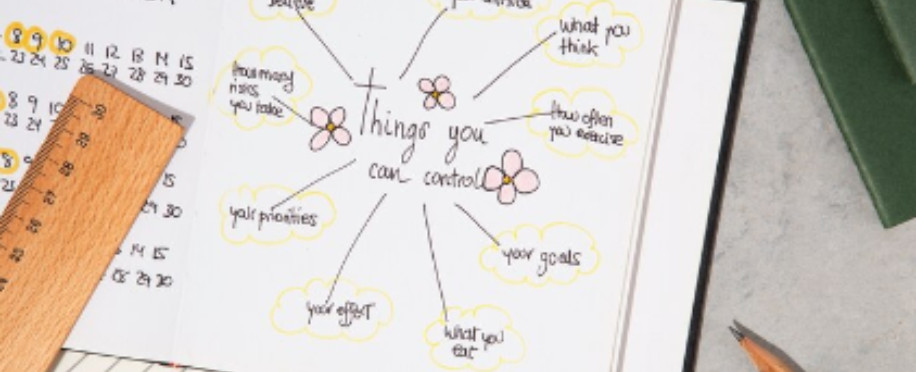 8 9 10 11 12 13 14 15
23 24 25 26 27 28 29 30
8 9 10
23 24
8 9
15
29 30
14 15
28 29 30
30
29
28
27
26
25
what you
think
how many
risks
you take
How often
you exercise
Things you
can control
your priorities
your goals
your effort
what you
eat